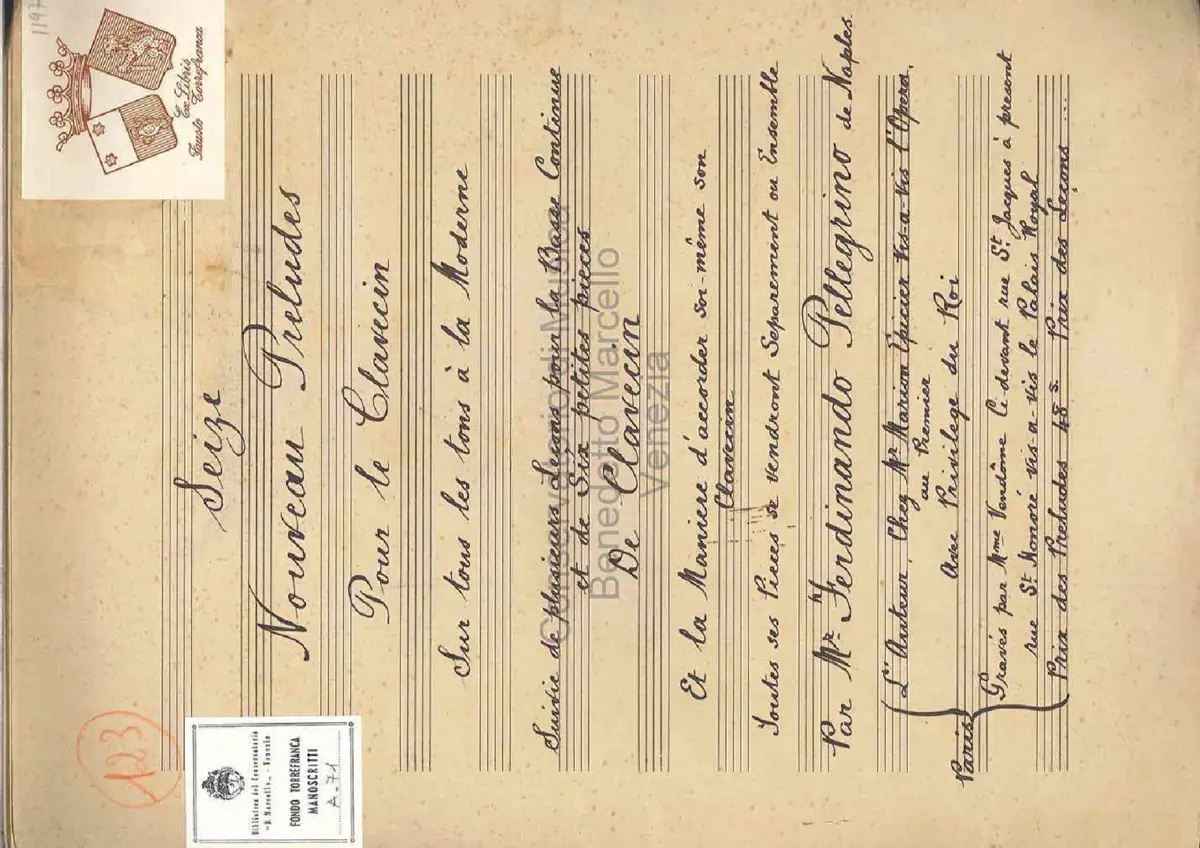 1197
Ex Libris
Fausto Torrefranca
123
Biblioteca del Conservatorio
"B. Marcello" - Venezia
FONDO TORREFRANCA
MANOSCRITTI
A-71
Seize
Nouveau Preludes
Pour le Clavecin
Sur tous les tons à la Moderne
Suivie de plusieurs Leçons pour la Basse Continue
et de Six petites pièces
De Clavecin
Et la Maniere d'accorder soi-même son
Clavecin
Toutes ses Pieces se vendront Separement ou Ensemble
Par Mr. Ferdinando Pellegrino de Naples
Paris
L'Auteur, Chez Mr Marion Epicier vis-a-vis l'Opera.
au Premier
Avec Privilege du Roi
Gravés par Mme Vendôme Ci devant rue St. Jacques à present
rue St. Honoré vis-a-vis le Palais Royal
Prix des Preludes 48 s. Prix des Leçons ...
Conservatorio di Musica
Benedetto Marcello
Venezia